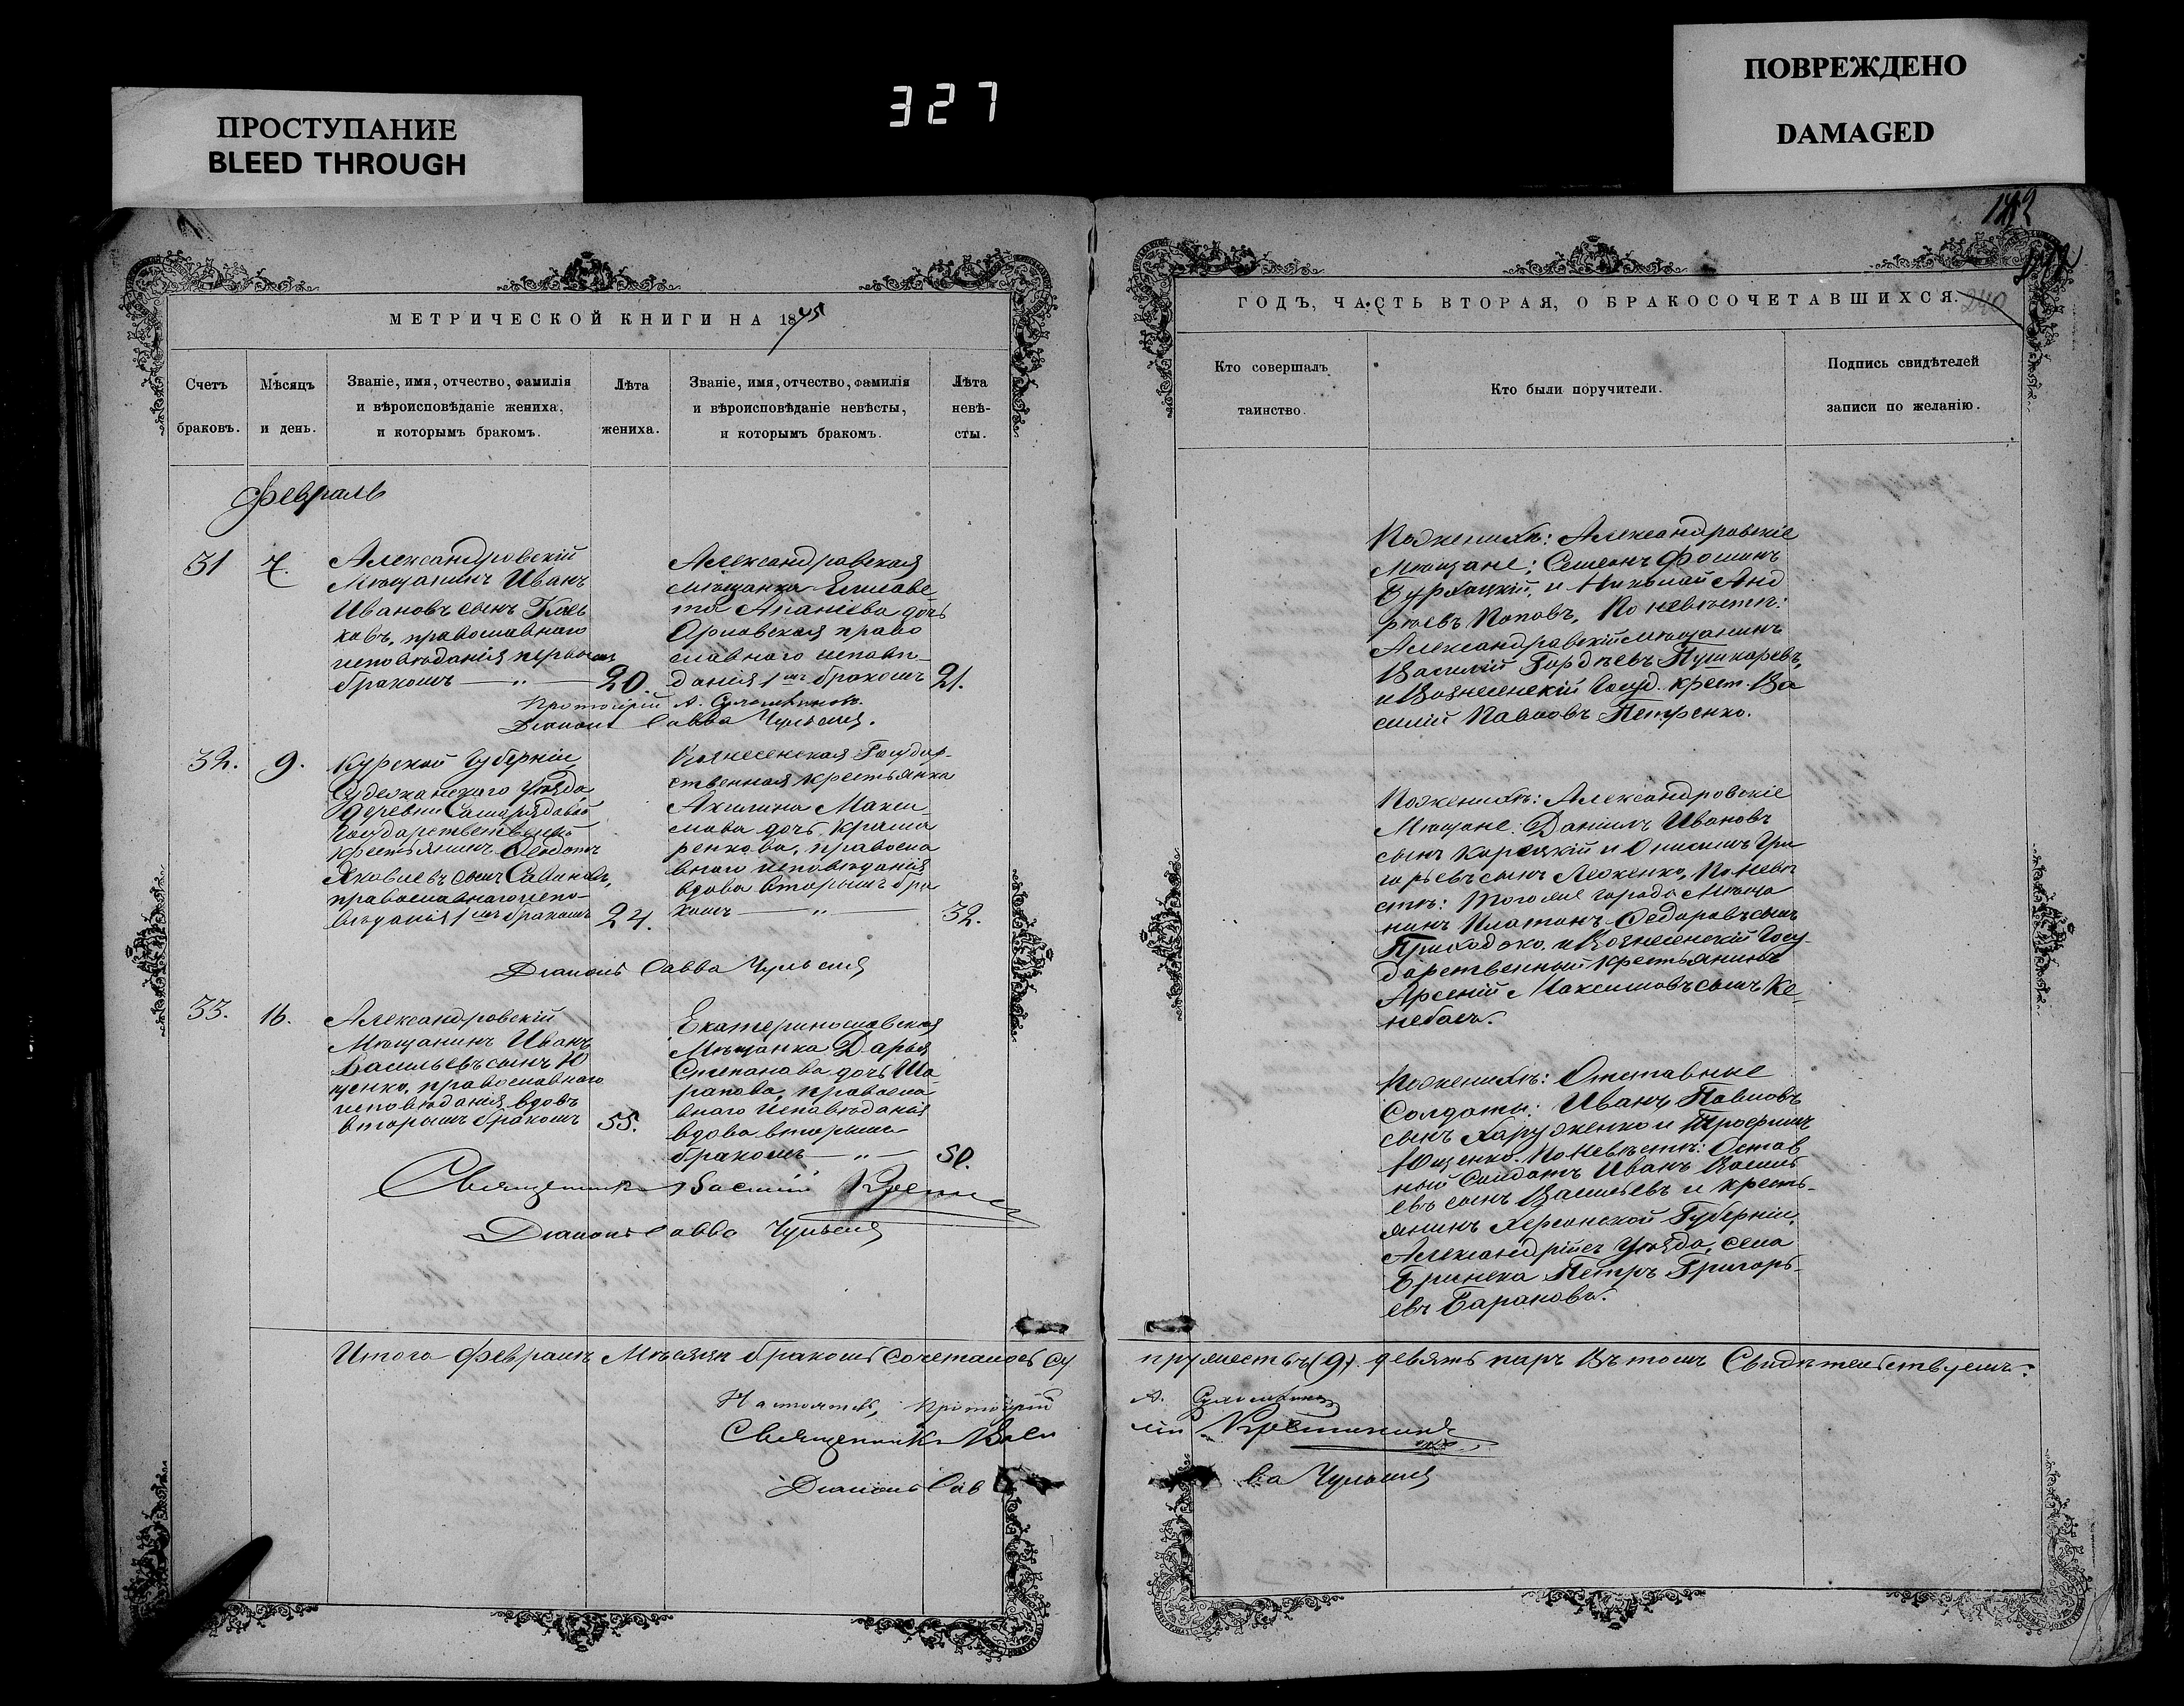 ПРОСТУПАНИЕ
BLEED THROUGH
327
ПОВРЕЖДЕНО
DAMAGED
МЕТРИЧЕСКОЙ КНИГИ НА 1875
Счетъ браковъ.
Мѣсяцъ и день.
Званіе, имя, отчество, фамилія
и вѣроисповѣданіе жениха,
и которымъ бракомъ.
Лѣта жениха.
Званіе, имя, отчество, фамилія
и вѣроисповѣданіе невѣсты,
и которымъ бракомъ.
Лѣта
невѣ-
сты.
Февраль
31
7.
Александровскій
Мѣщанинъ Иванъ
Ивановъ сынъ
православнаго
исповѣданія первымъ
бракомъ — „ —
20.
Александровская
мѣщанка Елисаве
та Ананіева дочь
Орловская право
славнаго исповѣ-
данія 1мъ бракомъ
21.
Протоіерей А.
Діаконъ Савва
32.
9.
Курской Губерніи
Суджанскаго Уѣзда
Деревни
Государственный
крестьянинъ Феодотъ
Яковлевъ сынъ
православнаго испо-
вѣданія 1мъ бракомъ
24.
Вознесенская Государ-
ственная крестьянка
Акилина Макси
мова дочь Крама
ренкова, правосла
внаго исповѣданія
вдова вторымъ бра
комъ — „ —
32.
Діаконъ Савва
33.
16.
Александровскій
Мѣщанинъ Иванъ
Васильевъ сынъ Ю
щенко, православнаго
исповѣданія вдовъ
вторымъ бракомъ
55.
Екатеринославская
Мѣщанка Дарья
Степанова дочь Ша
рапова, правосла
внаго Исповѣданія
вдова вторымъ
бракомъ — „ —
50.
Священникъ Василій
Діаконъ Савва
Итого Февралѣ Мѣсяцѣ бракомъ сочеталось су
Настоятель, протоіерей
Священникъ Васи
Діаконъ Сав
ГОДЪ, ЧАСТЬ ВТОРАЯ, О БРАКОСОЧЕТАВШИХСЯ.
240
Кто совершалъ
таинство.
Кто были поручители.
Подпись свидѣтелей
записи по желанію.
По женихѣ: Александровскіе
Мѣщане: Семенъ Фоминъ
и Николай Анд
рѣевъ Поповъ, По невѣстѣ:
Александровскій мѣщанинъ
Василій Гордѣевъ Пушкаревъ,
и Вознесенскій Госуд. крест. Ва
силій Павловъ Петренко.
По женихѣ: Александровскіе
Мѣщане: Даніилъ Ивановъ
сынъ Корецкій и Онисимъ Гри
горьевъ сынъ Леженко, По невѣ
стѣ: Того же города Мѣща
нинъ Платонъ Федоровъ сынъ
Приходько и Вознесенскій Госу-
дарственный крестьянинъ
Арсеній Максимовъ сынъ Ке-
небасъ.
По женихѣ: Отставные
Солдаты: Иванъ Павловъ
сынъ Харуженко и Трофимъ
Ющенко. По Невѣстѣ: Остав
ный Солдатъ Иванъ Василь
евъ сынъ Васильевъ и кресть-
янинъ Херсонской Губерніи,
Александрійск Уѣзда, села
Петръ Григорь-
евъ Барановъ.
пружествѣ (9) девять паръ Въ томъ Свидѣтельствуемъ:
А.
лій
ва